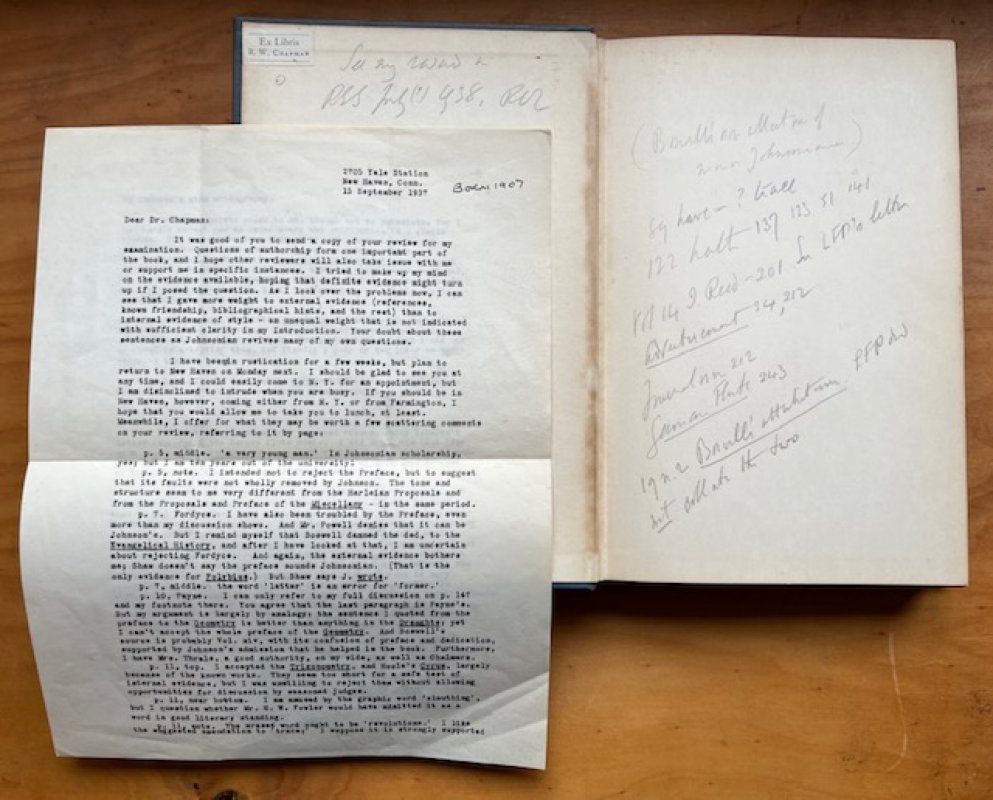 Ex Libris
R. W. CHAPMAN
See my review in
RES July 1938,
2705 Yale Station
New Haven, Conn.
15 September 1937
Born 1907
Dear Dr. Chapman:
It was good of you to send a copy of your review for my
examination. Questions of authorship form one important part of
the book, and I hope other reviewers will also take issue with me
or support me in specific instances. I tried to make up my mind
on the evidence available, hoping that definite evidence might turn
up if I posed the question. As I look over the problems now, I can
see that I gave more weight to external evidence (references,
known friendship, bibliographical hints, and the rest) than to
internal evidence of style - an unequal weight that is not indicated
with sufficient clarity in my Introduction. Your doubt about these
sentences as Johnsonian revives many of my own questions.
I have been in rustication for a few weeks, but plan to
return to New Haven on Monday next. I should be glad to see you at
any time, and I could easily come to N. Y. for an appointment, but
I am disinclined to intrude when you are busy. If you should be in
New Haven, however, coming either from N. Y. or from Farmington, I
hope that you would allow me to take you to lunch, at least.
Meanwhile, I offer for what they may be worth a few scattering comments
on your review, referring to it by page:
p. 5, middle. 'a very young man.' In Johnsonian scholarship,
yes; but I am ten years out of the university!
p. 5, note. I intended not to reject the Preface, but to suggest
that its faults were not wholly removed by Johnson. The tone and
structure seem to me very different from the Harleian Proposals and
from the Proposals and Preface of the Miscellany - in the same period.
p. 7. Fordyce. I have also been troubled by the Preface, even
more than my discussion shows. And Mr. Powell denies that it can be
Johnson's. But I remind myself that Boswell damned the ded. to the
Evangelical History, and after I have looked at that, I am uncertain
about rejecting Fordyce. And again, the external evidence bothers
me; Shaw doesn't say the preface sounds Johnsonian. (That is the
only evidence for Polybius.) But Shaw says J. wrote.
p. 9, middle. the word 'letter' is an error for 'former.'
p. 10, Payne. I can only refer to my full discussion on p. 147
and my footnote there. You agree that the last paragraph is Payne's.
But my argument is largely by analogy: the sentence I quoted from the
preface to the Geometry is better than anything in the Draughts; yet
I can't accept the whole preface of the Geometry. And Boswell's
source is probably Vol. xiv, with its confusion of preface and dedication,
supported by Johnson's admission that he helped in the book. Furthermore,
I have Mrs. Thrale, a good authority, on my side, as well as Chalmers.
p. 11, top. I accepted the Trigonometry, and Hoole's Cyrus, largely
because of the known works. They seem too short for a safe test of
internal evidence, but I was unwilling to reject them without allowing
opportunities for discussion by seasoned judges.
p. 11, near bottom. I am amused by the graphic word 'sleuthing',
but I question whether Mr. H. W. Fowler would have admitted it as a
word in good literary standing.
p. 11, note. The erased word ought to be 'revolutions.' I like
the suggested emendation to 'trace;' I suppose it is strongly supported
minor Johnsoniana)
89 have – ?
122 137 123 51 141
VII 14 J Reid – 201 in LFP's letter
34, 212
Journal 212
German Flute 243
19 n. 2 attribution. LFP
not collate the two